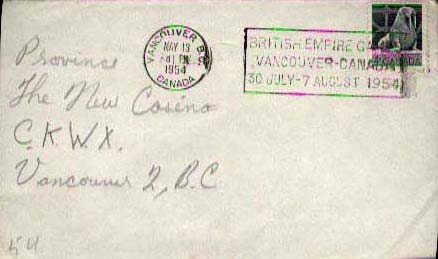 VANCOUVER B.C.
MAY 13
PM
1954
CANADA
BRITISH EMPIRE
VANCOUVER-CANADA
30 JULY-7 AUGUST 1954
Province
The New Casino
C.K.W.X.
Vancouver 2, B.C
54